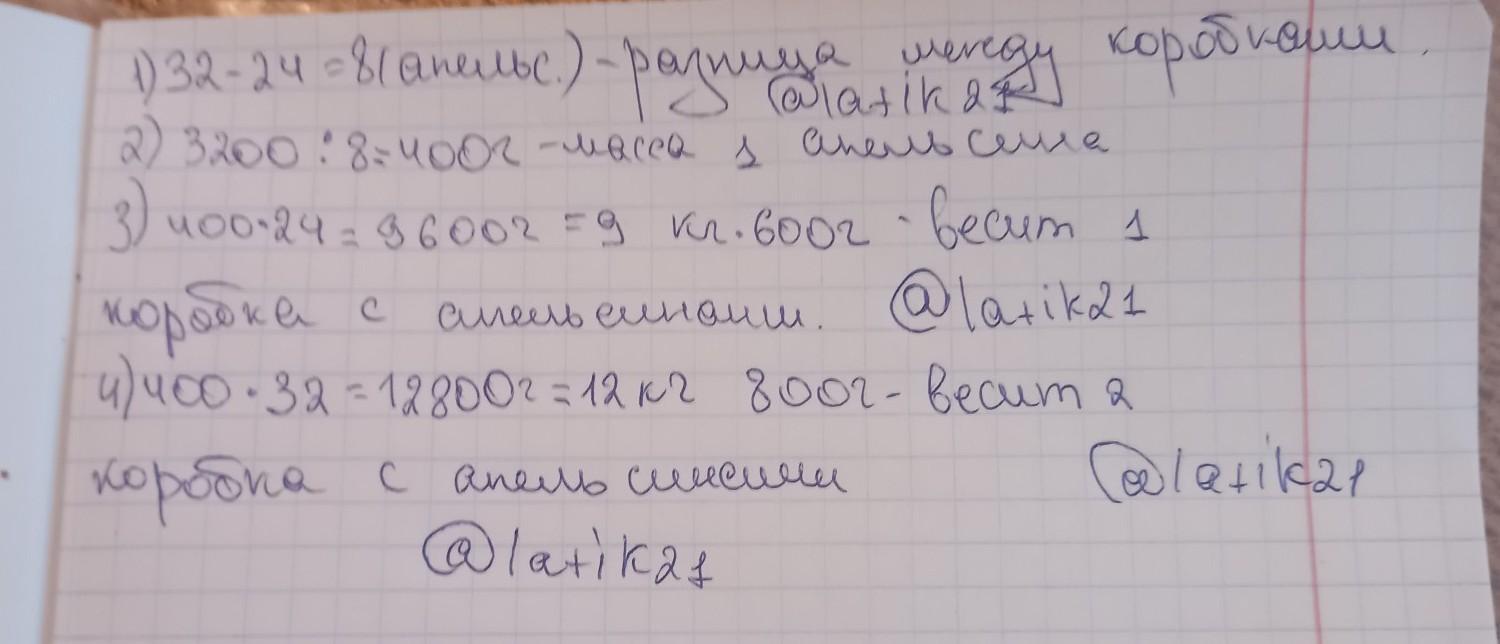 1) 32 - 24 = 8 (апельс.) - разница между коробками.
@latik21
2) 3200 : 8 = 400г - масса 1 апельсина
3) 400 · 24 = 9600г = 9 кг. 600г - весит 1
коробка с апельсинами. @latik21
4) 400 · 32 = 12800г = 12 кг 800г - весит 2
коробка с апельсинами @latik21
@latik21